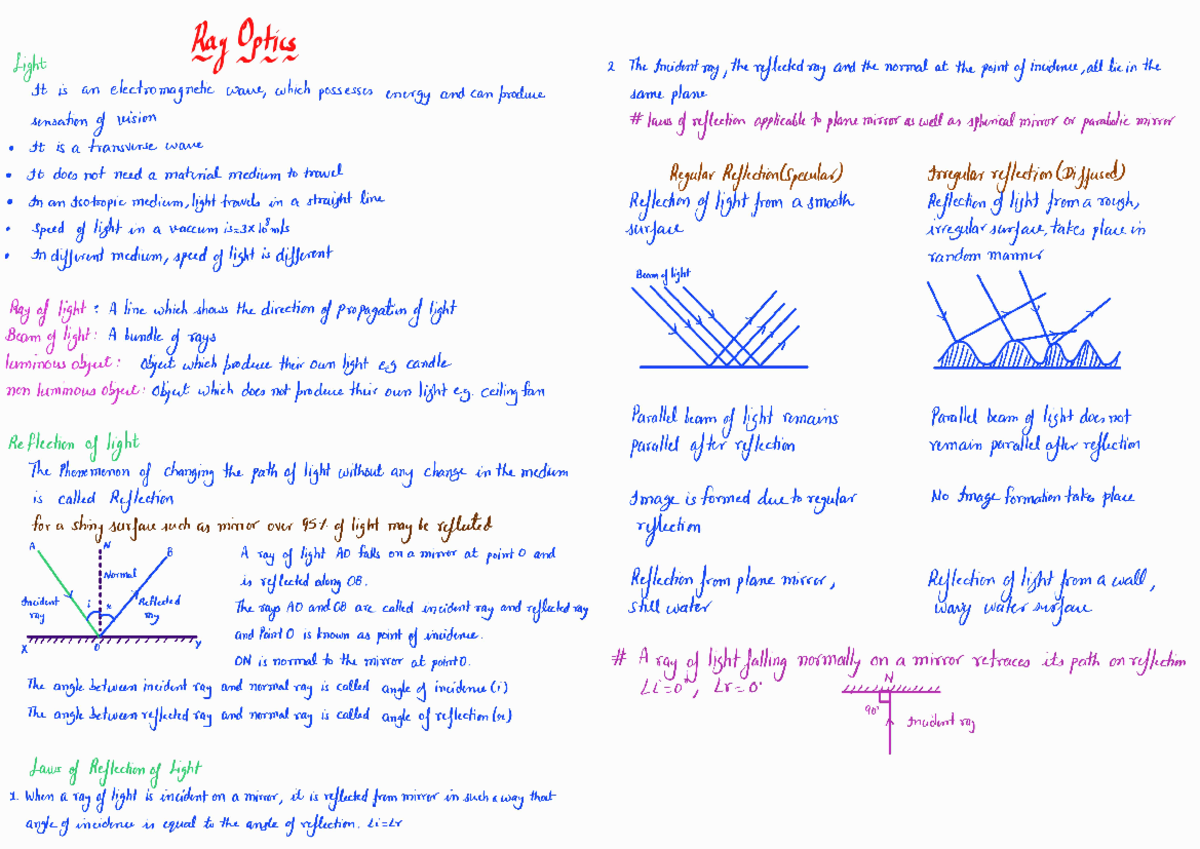 Ray Optics
Light
It is an electromagnetic wave, which possesses energy and can produce
sensation of vision
• It is a transverse wave
• It does not need a material medium to travel
• In an Isotropic medium, light travels in a straight line
• Speed of light in a vaccum is=3×10⁸m/s
• In different medium, speed of light is different
Ray of light : A line which shows the direction of propagation of light
Beam of light: A bundle of rays
luminous object: Object which produce their own light e.g candle
non luminous object: Object which does not produce their own light e.g. ceiling fan
Reflection of light
The Phenomenon of changing the path of light without any change in the medium
is called Reflection
for a shiny surface such as mirror over 95% of light may be reflected
A
N
B
Normal
Incident
ray
i
r
Reflected
ray
X
O
Y
A ray of light AO falls on a mirror at point O and
is reflected along OB.
The rays AO and OB are called incident ray and reflected ray
and Point O is known as point of incidence.
ON is normal to the mirror at point O.
The angle between incident ray and normal ray is called angle of incidence (i)
The angle between reflected ray and normal ray is called angle of reflection (r)
Laws of Reflection of Light
1. When a ray of light is incident on a mirror, it is reflected from mirror in such a way that
angle of incidence is equal to the angle of reflection. ∠i=∠r
2 The Incident ray, the reflected ray and the normal at the point of incidence, all lie in the
same plane
# laws of reflection applicable to plane mirror as well as spherical mirror or parabolic mirror
Regular Reflection(Specular)
Reflection of light from a smooth
surface
Beam of light
Parallel beam of light remains
parallel after reflection
Image is formed due to regular
reflection
Reflection from plane mirror,
still water
Irregular reflection(Diffused)
Reflection of light from a rough,
irregular surface, takes place in
random manner
Parallel beam of light does not
remain parallel after reflection
No Image formation takes place
Reflection of light from a wall,
wavy water surface
# A ray of light falling normally on a mirror retraces its path on reflection
∠i=0°, ∠r=0°
N
90°
Incident ray